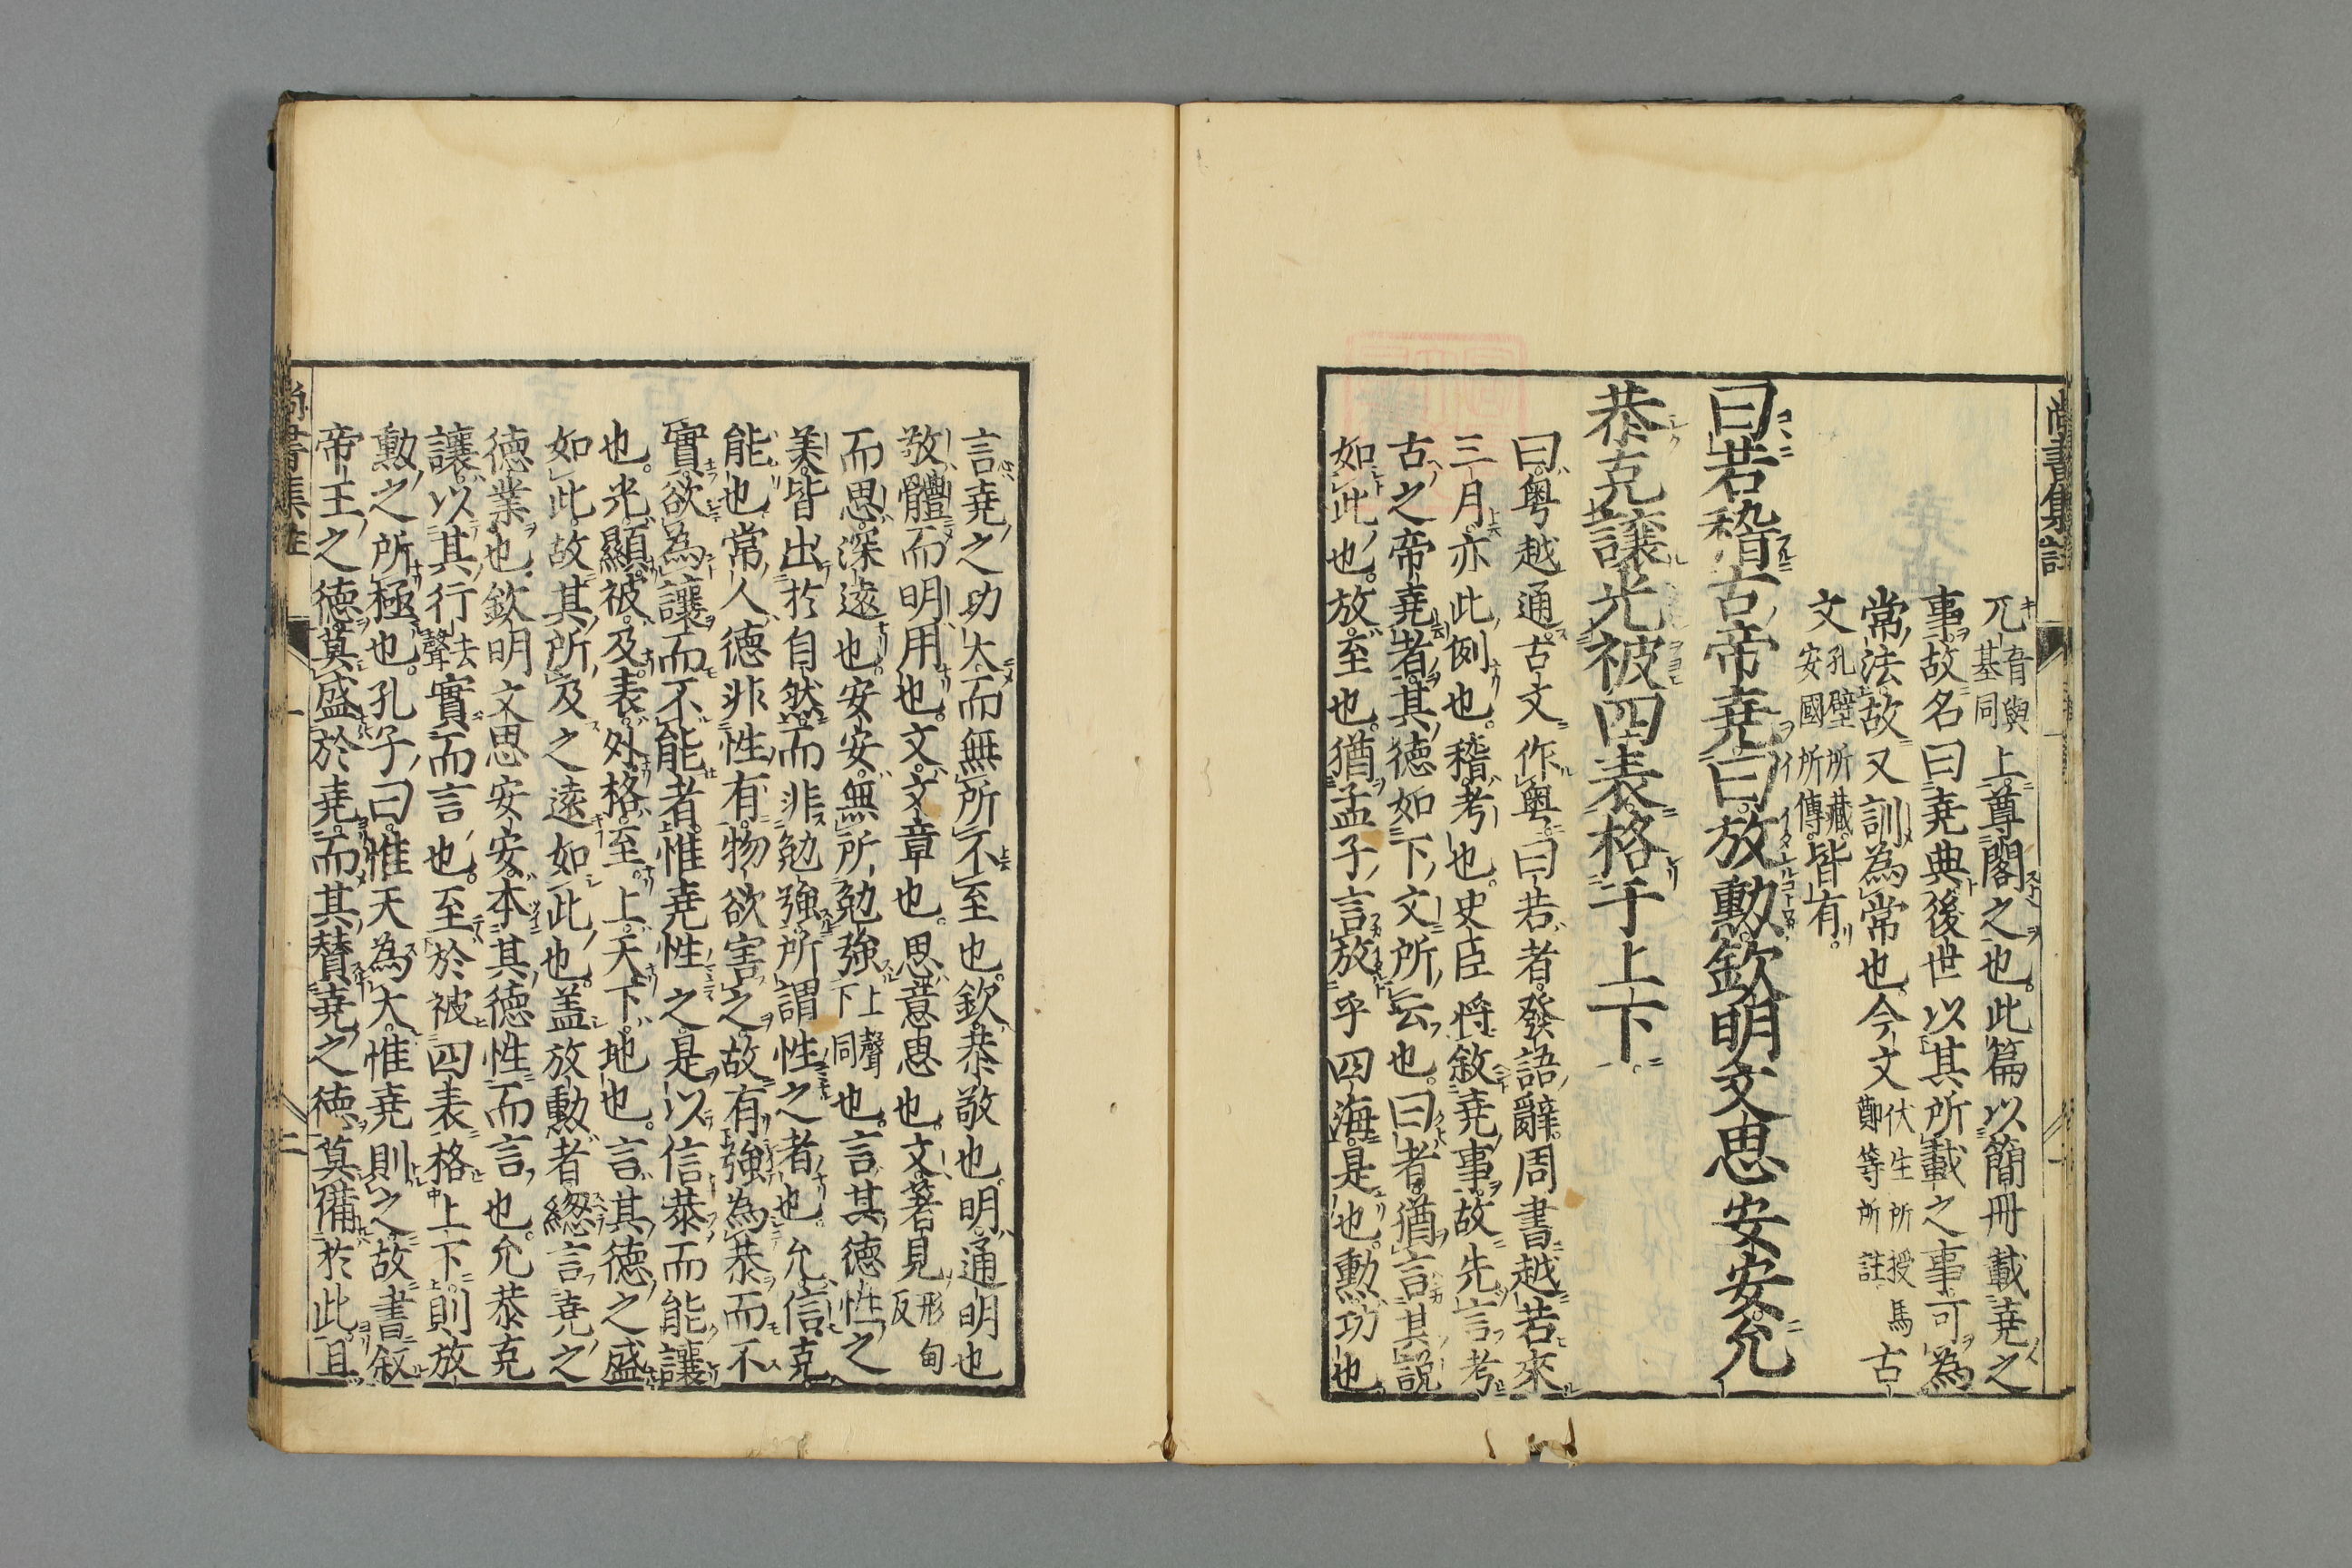 尚書集註
丌音與基同上尊閣之也。此篇以簡冊載堯之
事故名曰堯典後世以其所載之事可為
常法故又訓為常也。今文伏生所授馬鄭等所註古
文孔壁所藏安國所傳皆有。
曰若稽古帝堯曰放勳欽明文思安安允
恭克讓光被四表格于上下
曰粵越通古文作粵曰若者發語辭周書越若來
三月亦此例也。稽考也。史臣將敘堯事故先言考
古之帝堯者其德如下文所云也。曰者猶言其說
如此也。放至也。猶孟子言放乎四海是也。勳功也
言堯之功大而無所不至也。欽恭敬也。明通明也
敬體而明用也。文文章也。思意思也。文著見形甸反
而思深遠也。安安無所勉強上聲下同也。言其德性之
美皆出於自然而非勉強所謂性之者也。允信克
能也常人德非性有物欲害之故有強為恭而不
實欲為讓而不能者惟堯性之是以信恭而能讓
也。光顯被及表外格至上天下地也。言其德之盛
如此故其所及之遠如此也。蓋放勳者總言堯之
德業也。欽明文思安安本其德性而言也。允恭克
讓以其行去聲實而言也。至於被四表格上下則放
勳之所極也。孔子曰惟天為大惟堯則之故書叙
帝王之德莫盛於堯而其贊堯之德莫備於此且
尚書集註
一
二